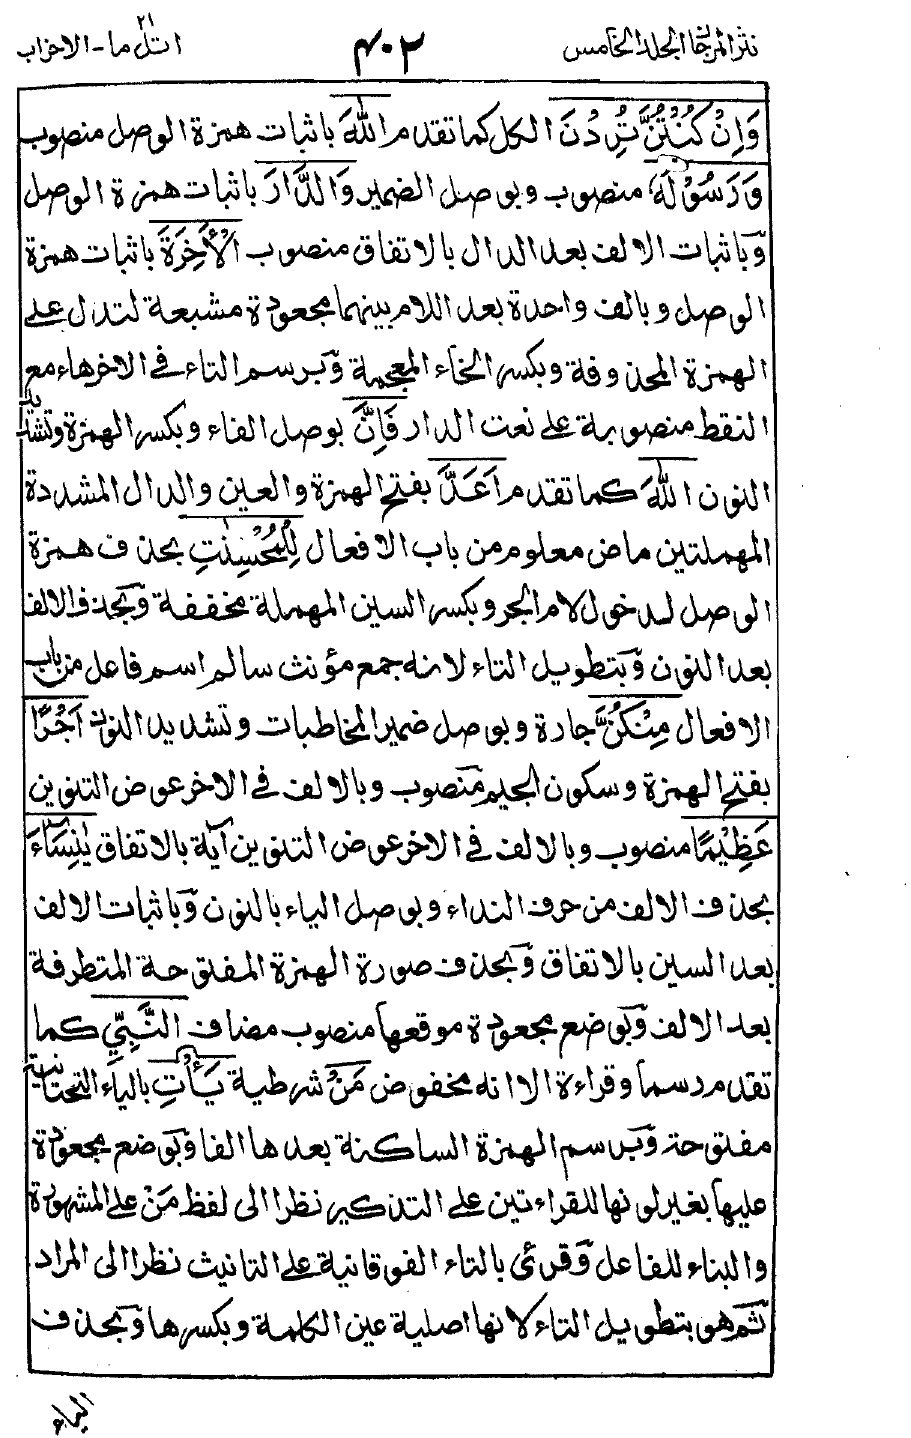 نثر المرجان الجلد الخامس
٤٠٢
اتل ما - الاحزاب
٢١
وَاِنْ كُنْتُنَّ تُرِدْنَ الكل كما تقدم اللهَ باثبات همزة الوصل منصوب
وَرَسُوْلَهٗ منصوب وبوصل الضمير وَالدَّارَ باثبات همزة الوصل
وباثبات الالف بعد الدال بالاتفاق منصوب الْاٰخِرَةَ باثبات همزة
الوصل وبالف واحدة بعد اللام بينهما مجعودة مشبعة لتدل على
الهمزة المحذوفة وبكسر الخاء المعجمة وبرسم التاء في الاخر هاء مع
النقط منصوبة على نعت الدار فَاِنَّ بوصل الفاء وبكسر الهمزة وتشديد
النون اللهَ كما تقدم اَعَدَّ بفتح الهمزة والعين والدال المشددة
المهملتين ماض معلوم من باب الافعال لِلْمُحْسِنٰتِ بحذف همزة
الوصل لدخول لام الجر وبكسر السين المهملة مخففة وبحذف الالف
بعد النون وبتطويل التاء لانه جمع مؤنث سالم اسم فاعل من باب
الافعال مِنْكُنَّ جارة وبوصل ضمير المخاطبات وتشديد النون اَجْرًا
بفتح الهمزة وسكون الجيم منصوب وبالالف في الاخر عوض التنوين
عَظِيْمًا منصوب وبالالف في الاخر عوض التنوين آية بالاتفاق يٰنِسَآءَ
بحذف الالف من حرف النداء وبوصل الياء بالنون وباثبات الالف
بعد السين بالاتفاق وبحذف صورة الهمزة المفتوحة المتطرفة
بعد الالف وبوضع مجعودة موقعها منصوب مضاف النَّبِيِّ كما
تقدم رسما وقراءة الا انه مخفوض مَنْ شرطية يَأْتِ بالياء التحتانية
مفتوحة وبرسم الهمزة الساكنة بعدها الفا وبوضع مجعودة
عليها بغير لونها للقراءتين على التذكير نظرا الى لفظ مَنْ على المشهورة
والبناء للفاعل وقرئ بالتاء الفوقانية على التانيث نظرا الى المراد
ثم هو بتطويل التاء لانها اصلية عين الكلمة وبكسرها وبحذف
الياء